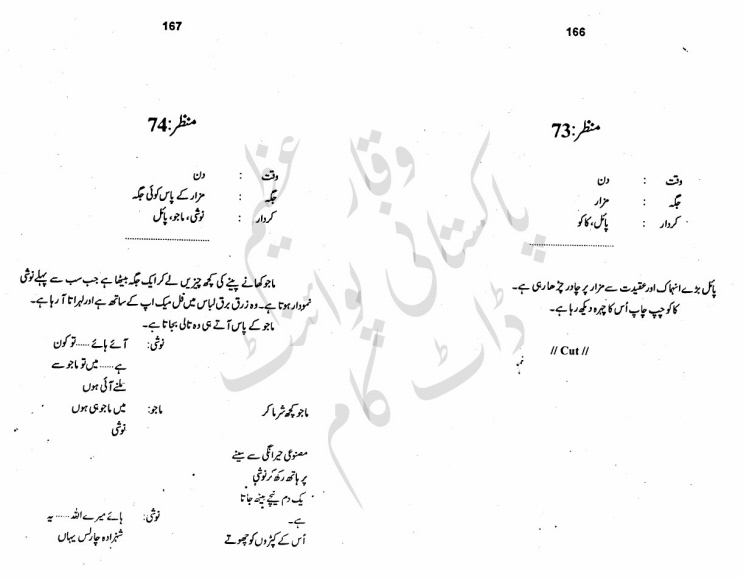 166
منظر:73
وقت : دن
جگہ : مزار
کردار : پائل، کاکو
پائل بڑے انہماک اور عقیدت سے مزار پر چادر چڑھا رہی ہے۔
کاکو چپ چاپ اُس کا چہرہ دیکھ رہا ہے۔
// Cut //
167
منظر:74
وقت : دن
جگہ : مزار کے پاس کوئی جگہ
کردار : نوشی، ماجو، پائل
ماجو کھانے پینے کی کچھ چیزیں لے کر ایک جگہ بیٹھا ہے جب سب سے پہلے نوشی
نمودار ہوتا ہے۔ وہ زرق برق لباس میں فل میک اپ کے ساتھ ہے اور لہراتا آ رہا ہے۔
ماجو کے پاس آتے ہی وہ تالی بجاتا ہے۔
نوشی: آئے ہائے ...... تو کون
ہے ...... میں تو ماجو سے
ملنے آئی ہوں
ماجو کچھ شرما کر ماجو: میں ماجو ہی ہوں
نوشی
مصنوعی حیرانگی سے سینے
پر ہاتھ رکھ کر نوشی
یک دم نیچے بیٹھ جاتا
ہے۔ نوشی: ہائے میرے اللہ ...... یہ
اُس کے کپڑوں کو چھوتے شہزادہ چارلس یہاں
پاکستانی پوائنٹ
ڈاٹ کام
وقار عظیم